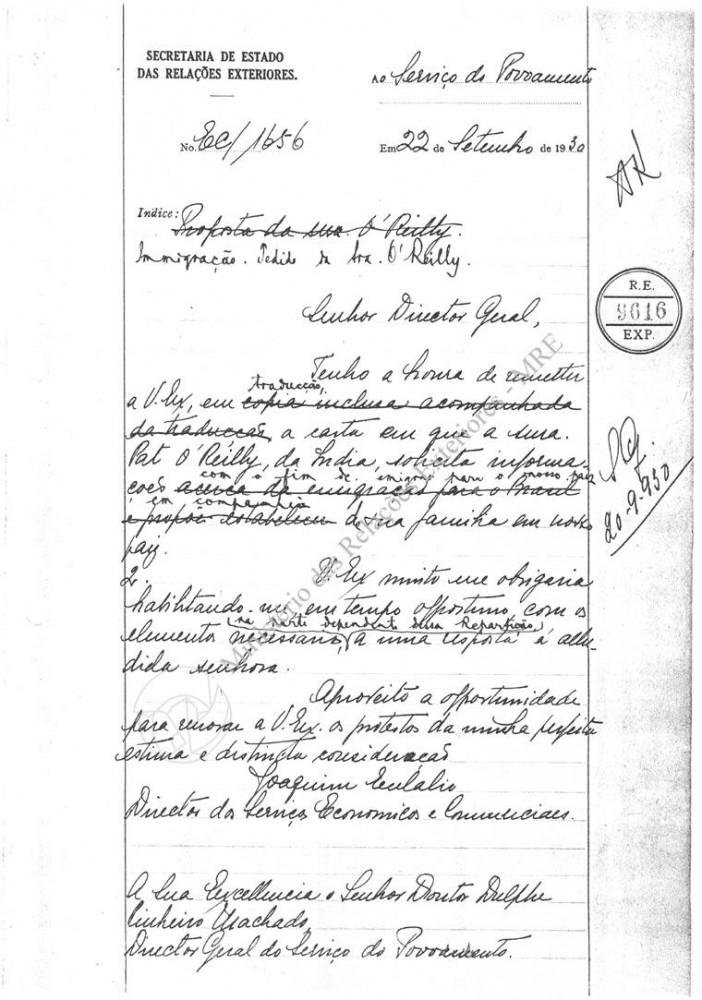 SECRETARIA DE ESTADO
DAS RELAÇÕES EXTERIORES.
Ao Serviço do Povoamento
No. EC/1656
Em 22 de Setembro de 1930
Indice: Proposta da sra. O'Reilly.
Immigração. Pedido da sra. O'Reilly.
R.E.
9616
EXP.
Senhor Director Geral,
Tenho a honra de remetter
traducção,
a V. Ex, em copia inclusa acompanhada
da traducção, a carta em que a snra.
Pat O'Reilly, da India, solicita informa-
com o fim de emigrar para o nosso paiz
ções acerca de emigração para o Brasil
em companhia
e propõe estabelecer de sua familia em nosso
paiz.
20-9-930
2. V. Ex muito me obrigaria
habilitando-me, em tempo opportuno, com os
(na parte dependente dessa Repartição,)
elementos necessarios a uma resposta á allu-
dida senhora.
Aproveito a opportunidade
para renovar a V. Ex. os protestos da minha perfeita
estima e distincta consideração
Joaquim Eulalio
Director dos Serviços Economicos e Commerciaes.
A Sua Excellencia o Senhor Doutor Dulphe
Pinheiro Machado,
Director Geral do Serviço do Povoamento.
Ministério das Relações Exteriores - MRE